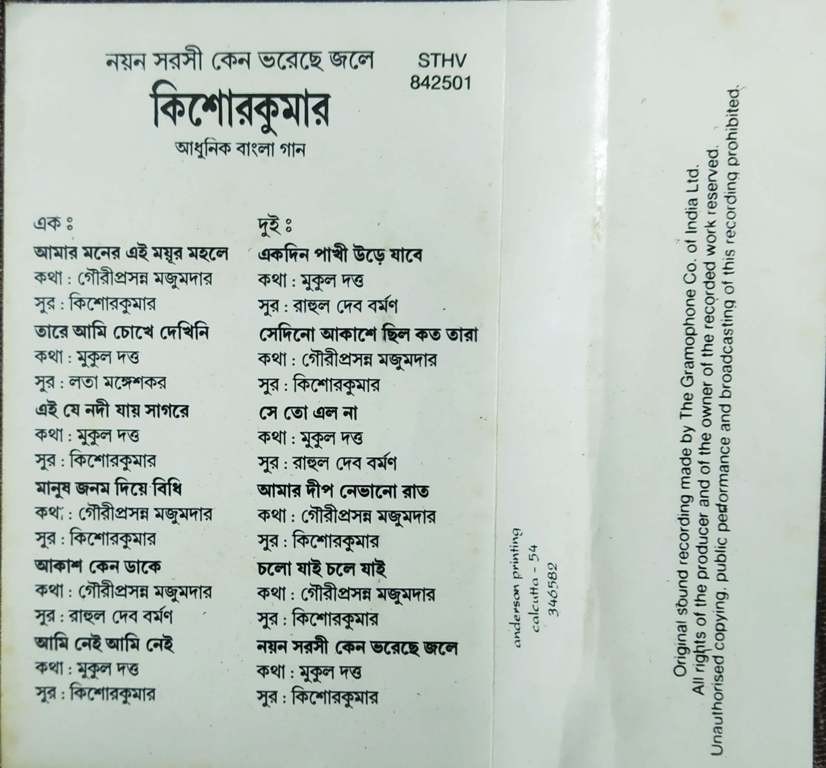 নয়ন সরসী কেন ভরেছে জলে
STHV
842501
কিশোরকুমার
আধুনিক বাংলা গান
এক :
আমার মনের এই ময়ূর মহলে
কথা : গৌরীপ্রসন্ন মজুমদার
সুর : কিশোরকুমার
তারে আমি চোখে দেখিনি
কথা : মুকুল দত্ত
সুর : লতা মঙ্গেশকর
এই যে নদী যায় সাগরে
কথা : মুকুল দত্ত
সুর : কিশোরকুমার
মানুষ জনম দিয়ে বিধি
কথা : গৌরীপ্রসন্ন মজুমদার
সুর : কিশোরকুমার
আকাশ কেন ডাকে
কথা : গৌরীপ্রসন্ন মজুমদার
সুর : রাহুল দেব বর্মণ
আমি নেই আমি নেই
কথা : মুকুল দত্ত
সুর : কিশোরকুমার
দুই :
একদিন পাখী উড়ে যাবে
কথা : মুকুল দত্ত
সুর : রাহুল দেব বর্মণ
সেদিনো আকাশে ছিল কত তারা
কথা : গৌরীপ্রসন্ন মজুমদার
সুর : কিশোরকুমার
সে তো এল না
কথা : মুকুল দত্ত
সুর : রাহুল দেব বর্মণ
আমার দীপ নেভানো রাত
কথা : গৌরীপ্রসন্ন মজুমদার
সুর : কিশোরকুমার
চলো যাই চলে যাই
কথা : গৌরীপ্রসন্ন মজুমদার
সুর : কিশোরকুমার
নয়ন সরসী কেন ভরেছে জলে
কথা : মুকুল দত্ত
সুর : কিশোরকুমার
anderson printing
calcutta - 54
346582
Original sound recording made by The Gramophone Co. of India Ltd.
All rights of the producer and of the owner of the recorded work reserved.
Unauthorised copying, public performance and broadcasting of this recording prohibited.